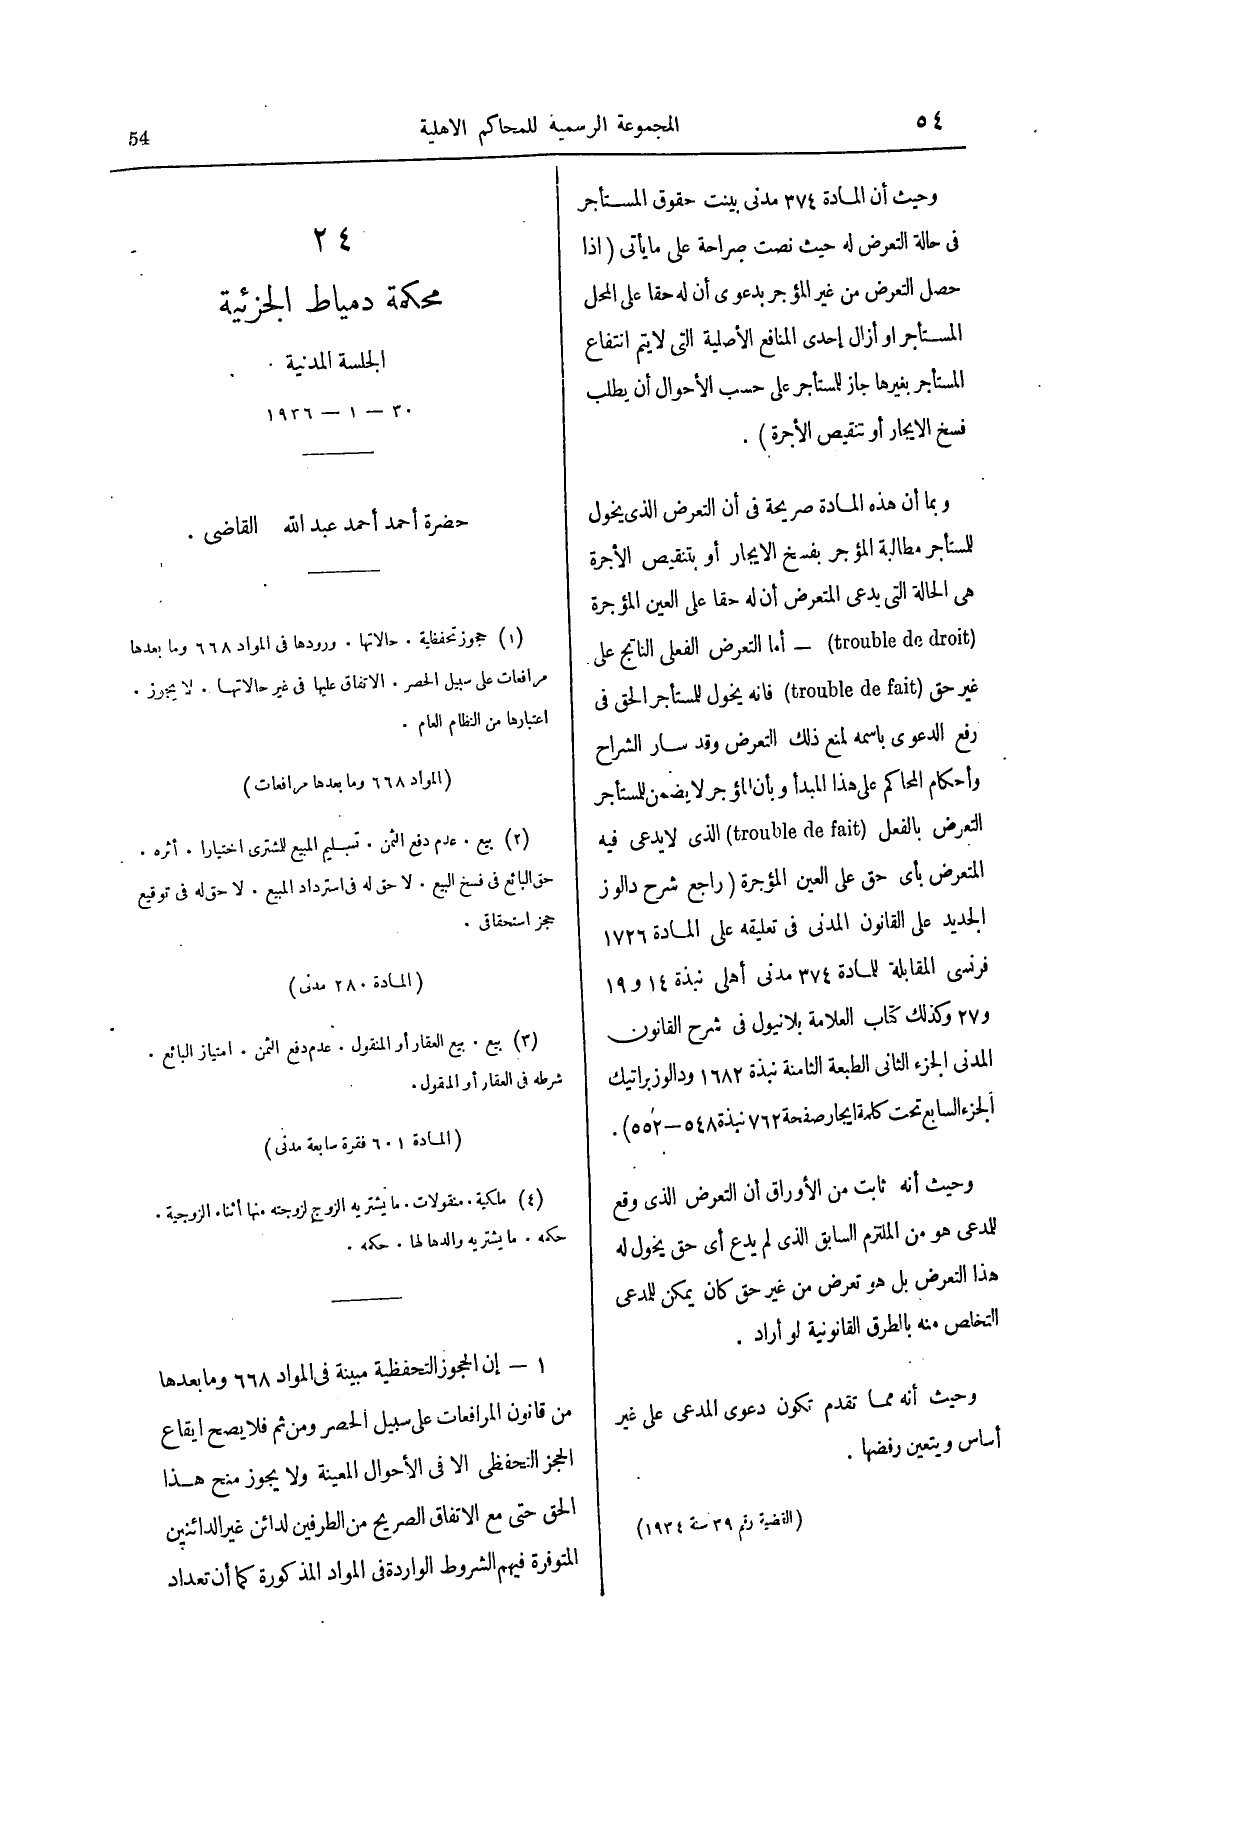 ٥٤
المجموعة الرسمية للمحاكم الاهلية
54
وحيث أن المادة ٣٧٤ مدنى بينت حقوق المستأجر
فى حالة التعرض له حيث نصت صراحة على مايأتى (اذا
حصل التعرض من غير المؤجر بدعوى أن له حقا على المحل
المستأجر او أزال إحدى المنافع الأصلية التى لايتم انتفاع
المستأجر بغيرها جاز للمستأجر على حسب الأحوال أن يطلب
فسخ الايجار أو تنقيص الأجرة) .
وبما أن هذه المادة صريحة فى أن التعرض الذى يخول
للمستأجر مطالبة المؤجر بفسخ الايجار أو بتنقيص الأجرة
هى الحالة التى يدعى المتعرض أن له حقا على العين المؤجرة
(trouble de droit) — أما التعرض الفعلى الناتج على
غير حق (trouble de fait) فانه يخول للمستأجر الحق فى
رفع الدعوى باسمه لمنع ذلك التعرض وقد سار الشراح
وأحكام المحاكم على هذا المبدأ وبأن المؤجر لايضمن للمستأجر
التعرض بالفعل (trouble de fait) الذى لايدعى فيه
المتعرض بأى حق على العين المؤجرة (راجع شرح دالوز
الجديد على القانون المدنى فى تعليقه على المادة ١٧٢٦
فرنسى المقابلة للمادة ٣٧٤ مدنى أهلى نبذة ١٤ و١٩
و٢٧ وكذلك كتاب العلامة بلانيول فى شرح القانون
المدنى الجزء الثانى الطبعة الثامنة نبذة ١٦٨٢ ودالوز براتيك
الجزء السابع تحت كلمة ايجار صفحة ٧٦٢ نبذة ٥٤٨ — ٥٥٢) .
وحيث أنه ثابت من الأوراق أن التعرض الذى وقع
للمدعى هو من الملتزم السابق الذى لم يدع أى حق يخول له
هذا التعرض بل هو تعرض من غير حق كان يمكن للمدعى
التخلص منه بالطرق القانونية لو أراد .
وحيث أنه مما تقدم تكون دعوى المدعى على غير
أساس ويتعين رفضها .
(القضية رقم ٣٩ سنة ١٩٣٤)
٢٤
محكمة دمياط الجزئية
الجلسة المدنية .
٣٠ — ١ — ١٩٣٦
حضرة أحمد أحمد عبد الله القاضى .
(١) حجوز تحفظية . حالاتها . ورودها فى المواد ٦٦٨ وما بعدها
مرافعات على سبيل الحصر . الاتفاق عليها فى غير حالاتها . لا يجوز .
اعتبارها من النظام العام .
(المواد ٦٦٨ وما بعدها مرافعات)
(٢) بيع . عدم دفع الثمن . تسليم المبيع للمشترى اختيارا . أثره .
حق البائع فى فسخ البيع . لا حق له فى استرداد المبيع . لا حق له فى توقيع
حجز استحقاقى .
(المادة ٢٨٠ مدنى)
(٣) بيع . بيع العقار أو المنقول . عدم دفع الثمن . امتياز البائع .
شرطه فى العقار أو المقول .
(المادة ٦٠١ فقرة سابعة مدنى)
(٤) ملكية . منقولات . ما يشتريه الزوج لزوجته منها أثناء الزوجية .
حكمه . ما يشتريه والدها لها . حكمه .
١ — إن الحجوز التحفظية مبينة فى المواد ٦٦٨ ومابعدها
من قانون المرافعات على سبيل الحصر ومن ثم فلا يصح ايقاع
الحجز التحفظى الا فى الأحوال المعينة ولا يجوز منح هذا
الحق حتى مع الاتفاق الصريح من الطرفين لدائن غير الدائنين
المتوفرة فيهم الشروط الواردة فى المواد المذكورة كما أن تعداد